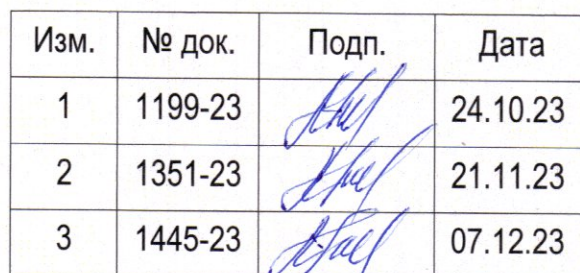 Изм. № док. Подп. Дата
1 1199-23 24.10.23
2 1351-23 21.11.23
3 1445-23 07.12.23